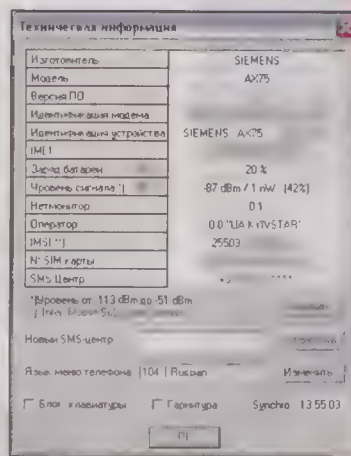 Техническая информация
Изготовитель SIEMENS
Модель AX75
Версия ПО
Идентификация модема
Идентификация устройства SIEMENS AX75
IMEI
Заряд батареи 20 %
Уровень сигнала *) -87 dBm / 1 nW (42%)
Нетмонитор 0.1
Оператор 0.0 "UA KYIVSTAR"
IMSI **) 25503
N° SIM карты
SMS Центр
*)Уровень от -113 dBm до -51 dBm
Новый SMS-центр
Язык меню телефона (104) Russian Изменить
Блок клавиатуры Гарнитура Synchro 13:55:03